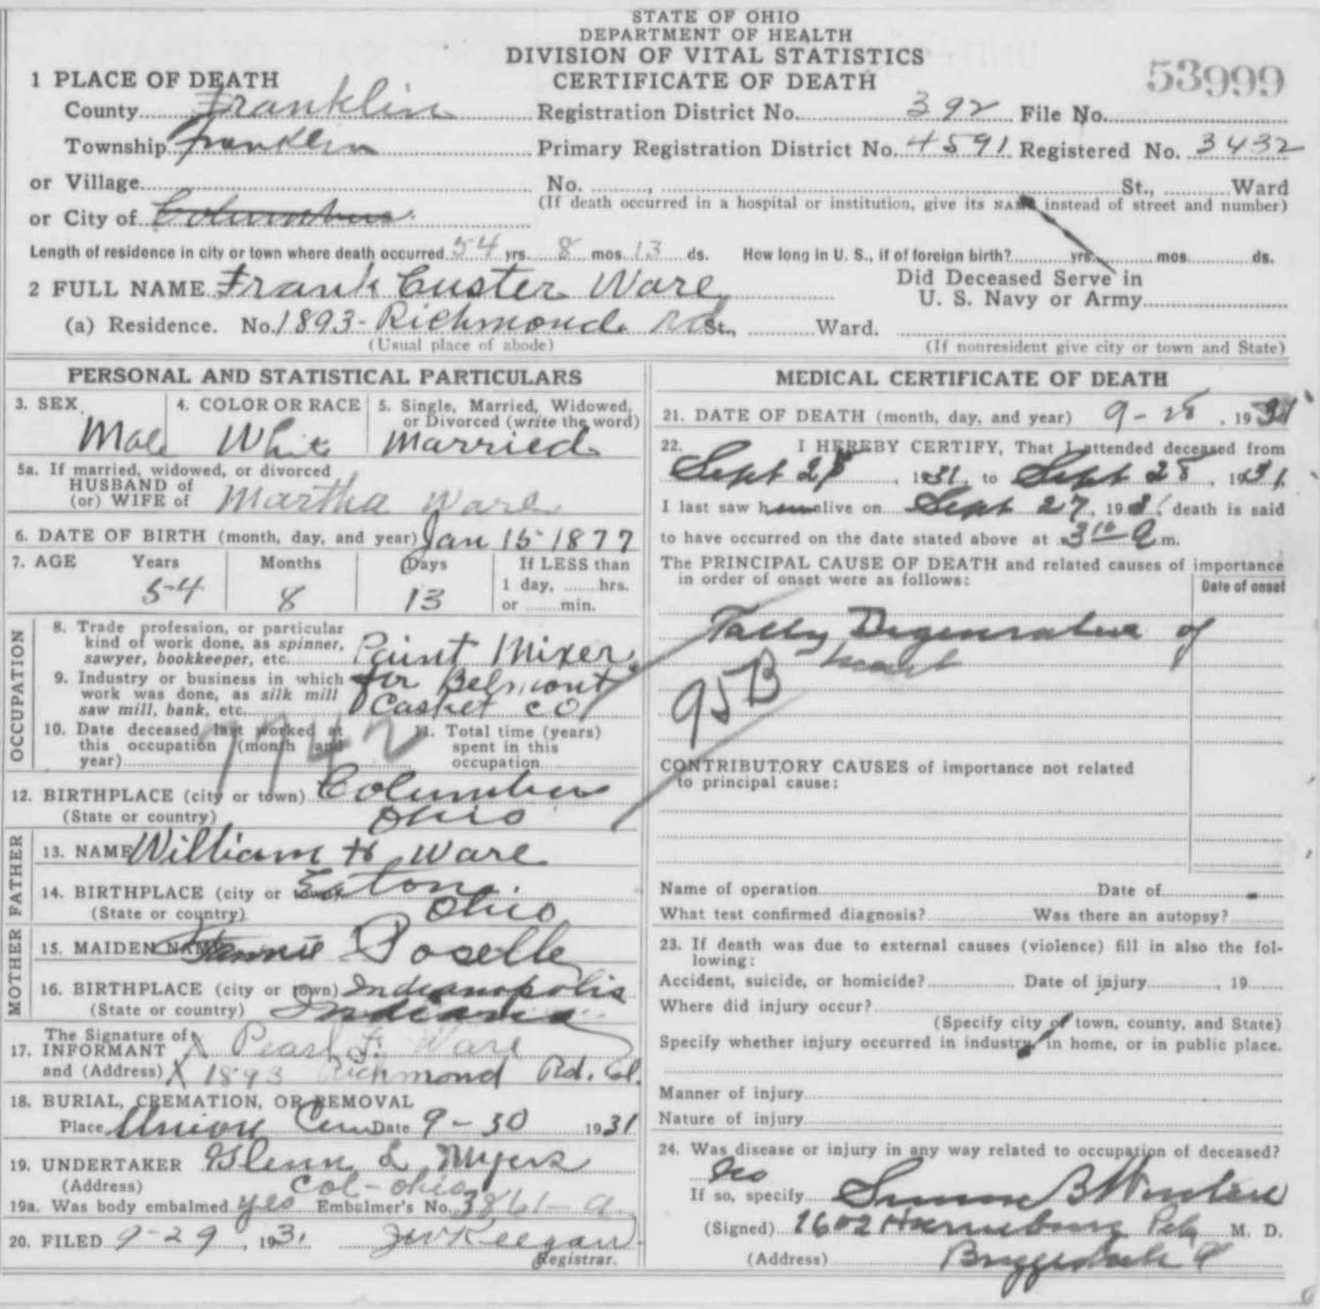 STATE OF OHIO
DEPARTMENT OF HEALTH
DIVISION OF VITAL STATISTICS
CERTIFICATE OF DEATH
53999
1 PLACE OF DEATH
County Franklin Registration District No. 392 File No.
Township Franklin Primary Registration District No. 4591 Registered No. 3432
or Village No. , St., Ward
or City of Columbus (If death occurred in a hospital or institution, give its NAME instead of street and number)
Length of residence in city or town where death occurred 54 yrs. 8 mos. 13 ds. How long in U. S., if of foreign birth? yrs. mos. ds.
2 FULL NAME Frank Custer Ware Did Deceased Serve in
U. S. Navy or Army
(a) Residence. No. 1893- Richmond Rd St., Ward.
(Usual place of abode) (If nonresident give city or town and State)
PERSONAL AND STATISTICAL PARTICULARS
3. SEX 4. COLOR OR RACE 5. Single, Married, Widowed,
or Divorced (write the word)
Male White Married
5a. If married, widowed, or divorced
HUSBAND of
(or) WIFE of Martha Ware
6. DATE OF BIRTH (month, day, and year) Jan 15 1877
7. AGE Years Months Days If LESS than
1 day, hrs.
54 8 13 or min.
OCCUPATION
8. Trade profession, or particular
kind of work done, as spinner,
sawyer, bookkeeper, etc. Paint Mixer
9. Industry or business in which
work was done, as silk mill
saw mill, bank, etc. for Belmont
Casket Co
10. Date deceased last worked at
this occupation (month and
year)
11. Total time (years)
spent in this
occupation
7742
12. BIRTHPLACE (city or town) Columbus
(State or country) Ohio
FATHER
13. NAME William H Ware
14. BIRTHPLACE (city or town) Eaton
(State or country) Ohio
MOTHER
15. MAIDEN NAME Poselle
16. BIRTHPLACE (city or town) Indianapolis
(State or country) Indiana
The Signature of
17. INFORMANT X Pearl F. Ware
and (Address) X 1893 Richmond Rd. Col.
18. BURIAL, CREMATION, OR REMOVAL
Place Union Cem Date 9-30 1931
19. UNDERTAKER Glenn L Myers
(Address) Col-Ohio
19a. Was body embalmed yes Embalmer's No. 3861-a
20. FILED 9-29, 1931 JW Keegan
Registrar.
MEDICAL CERTIFICATE OF DEATH
21. DATE OF DEATH (month, day, and year) 9-28, 1931
22. I HEREBY CERTIFY, That I attended deceased from
Sept 28, 1931, to Sept 28, 1931
I last saw h alive on Sept 27, 1931, death is said
to have occurred on the date stated above at m.
The PRINCIPAL CAUSE OF DEATH and related causes of importance
in order of onset were as follows:
Date of onset
Fatty Degeneration of
heart
95B
CONTRIBUTORY CAUSES of importance not related
to principal cause:
Name of operation Date of
What test confirmed diagnosis? Was there an autopsy?
23. If death was due to external causes (violence) fill in also the fol-
lowing:
Accident, suicide, or homicide? Date of injury , 19
Where did injury occur?
(Specify city or town, county, and State)
Specify whether injury occurred in industry, in home, or in public place.
Manner of injury
Nature of injury
24. Was disease or injury in any way related to occupation of deceased?
No
If so, specify
(Signed) M. D.
1602 Harrisburg Pike
(Address) Briggsdale O